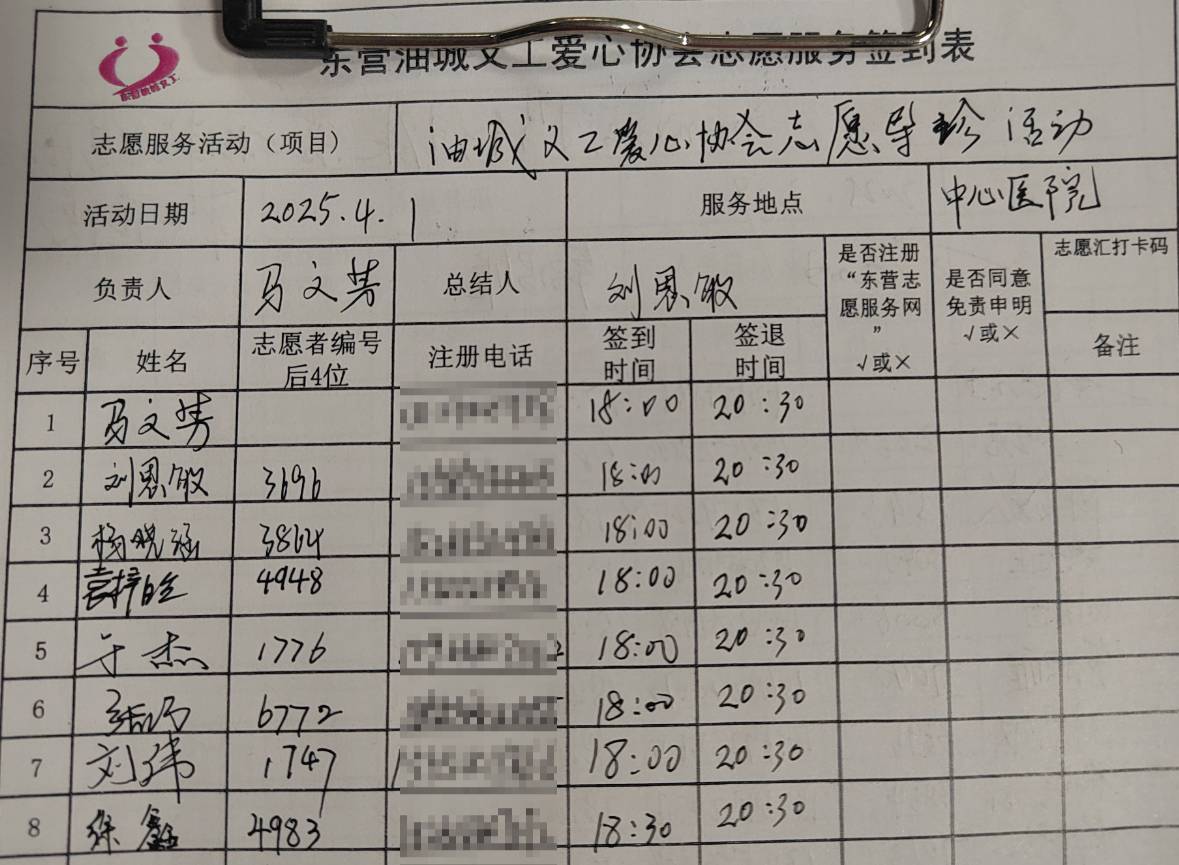 东营油城义工爱心协会志愿服务签到表
志愿服务活动（项目） 油城义工爱心协会志愿导诊活动
活动日期 2025.4.1 服务地点 中心医院
负责人 马文芳 总结人 刘恩敏 是否注册“东营志愿服务网”√或× 是否同意免责申明√或× 志愿汇打卡码
序号 姓名 志愿者编号后4位 注册电话 签到时间 签退时间 备注
1 马文芳 18:00 20:30
2 刘恩敏 3696 18:00 20:30
3 杨晓 3864 18:00 20:30
4 4948 18:00 20:30
5 于杰 1776 18:00 20:30
6 6772 18:00 20:30
7 刘伟 1747 18:00 20:30
8 徐鑫 4983 18:30 20:30